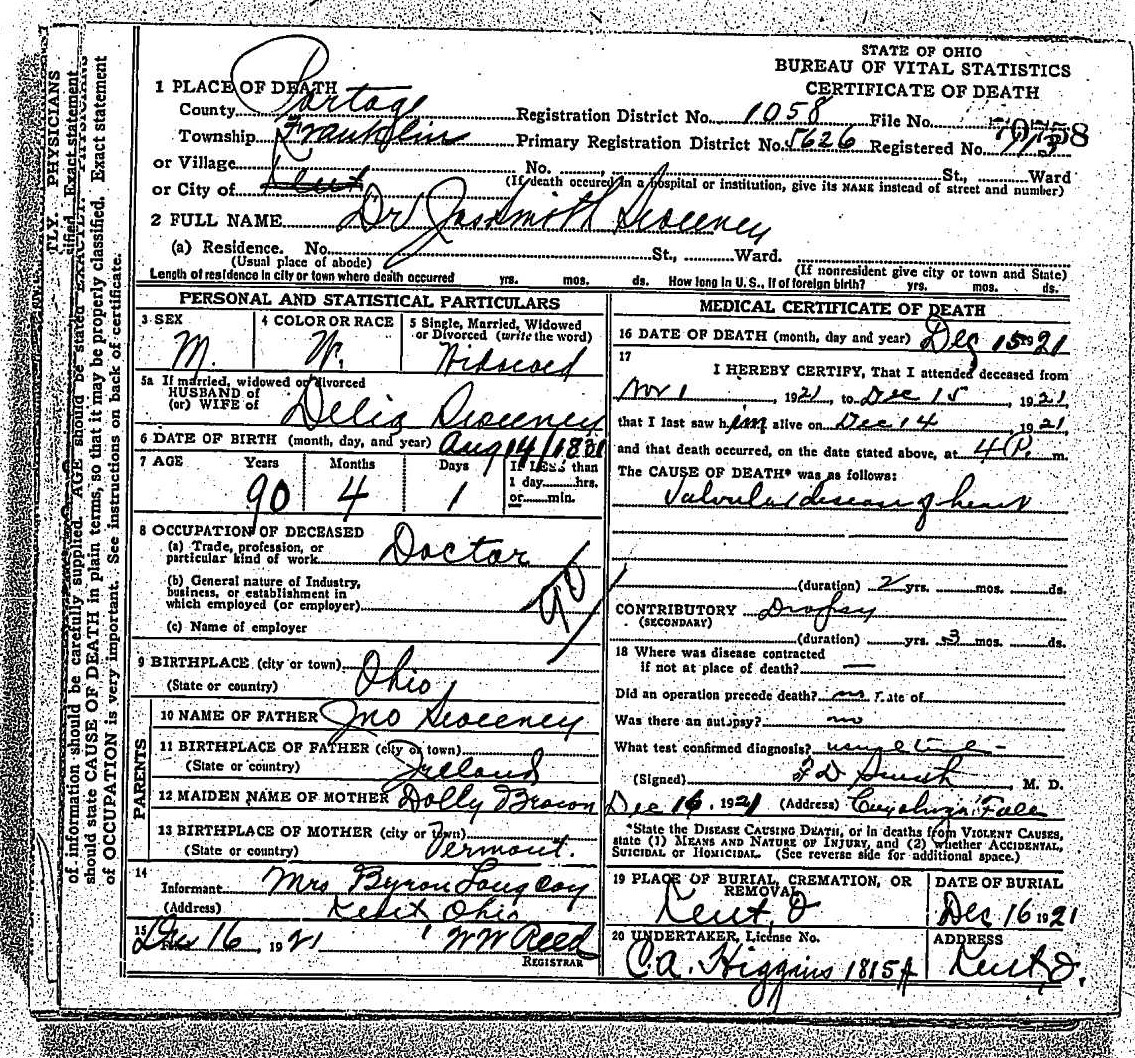 STATE OF OHIO
BUREAU OF VITAL STATISTICS
CERTIFICATE OF DEATH
1 PLACE OF DEATH
County Portage Registration District No. 1058 File No. 70758
Township Franklin Primary Registration District No. 5626 Registered No. 113
or Village No. St., Ward
or City of Kent (If death occured in a hospital or institution, give its NAME instead of street and number)
2 FULL NAME Dr Jas Smith Sweeney
(a) Residence. No. St., Ward.
(Usual place of abode) (If nonresident give city or town and State)
Length of residence in city or town where death occurred yrs. mos. ds. How long in U. S., if of foreign birth? yrs. mos. ds.
PERSONAL AND STATISTICAL PARTICULARS
3 SEX 4 COLOR OR RACE 5 Single, Married, Widowed or Divorced (write the word)
M. W. Widowed
5a If married, widowed or divorced
HUSBAND of
(or) WIFE of Delia Sweeney
6 DATE OF BIRTH (month, day, and year) Aug 14/1831
7 AGE Years Months Days If LESS than
1 day hrs.
or min.
90 4 1
8 OCCUPATION OF DECEASED
(a) Trade, profession, or
particular kind of work Doctor
(b) General nature of Industry,
business, or establishment in
which employed (or employer)
(c) Name of employer
90
9 BIRTHPLACE (city or town)
(State or country) Ohio
PARENTS
10 NAME OF FATHER Jno Sweeney
11 BIRTHPLACE OF FATHER (city or town)
(State or country) Ireland
12 MAIDEN NAME OF MOTHER Dolly Brown
13 BIRTHPLACE OF MOTHER (city or town)
(State or country) Vermont.
14
Informant Mrs Byron Longcoy
(Address) Kent Ohio
15 Dec 16, 1921 WW Reed
REGISTRAR
MEDICAL CERTIFICATE OF DEATH
16 DATE OF DEATH (month, day and year) Dec 15 1921
17
I HEREBY CERTIFY, That I attended deceased from
Nov 1, 1921, to Dec 15, 1921,
that I last saw him alive on Dec 14, 1921,
and that death occurred, on the date stated above, at 4 P. m.
The CAUSE OF DEATH* was as follows:
Valvular disease of heart
(duration) 2 yrs. mos. ds.
CONTRIBUTORY Dropsy
(SECONDARY)
(duration) yrs. 3 mos. ds.
18 Where was disease contracted
if not at place of death? —
Did an operation precede death? no Date of
Was there an autopsy? no
What test confirmed diagnosis?
(Signed) F D Smith, M. D.
Dec 16, 1921 (Address) Cuyahoga Falls
*State the DISEASE CAUSING DEATH, or in deaths from VIOLENT CAUSES,
state (1) MEANS AND NATURE OF INJURY, and (2) whether ACCIDENTAL,
SUICIDAL or HOMICIDAL. (See reverse side for additional space.)
19 PLACE OF BURIAL, CREMATION, OR REMOVAL DATE OF BURIAL
Kent, O Dec 16 1921
20 UNDERTAKER, License No. ADDRESS
C.A. Higgins 1815A Kent O.
TLY. PHYSICIANS
of information should be carefully supplied. AGE should be stated EXACTLY. PHYSICIANS
should state CAUSE OF DEATH in plain terms, so that it may be properly classified. Exact statement
of OCCUPATION is very important. See instructions on back of certificate.